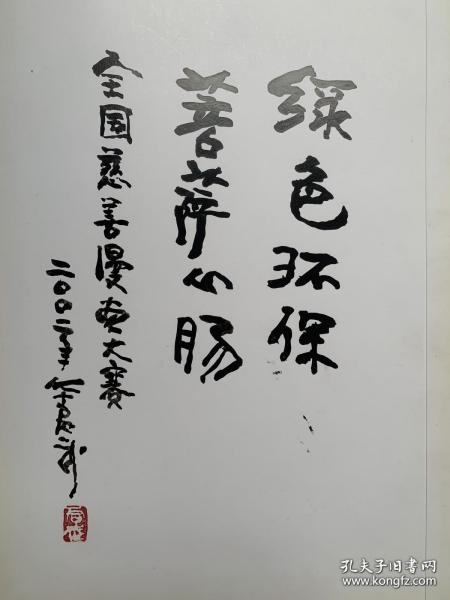 绿色环保
菩萨心肠
全国慈善漫画大赛
二〇〇二年 华君武
君武
孔夫子旧书网
www.kongfz.com